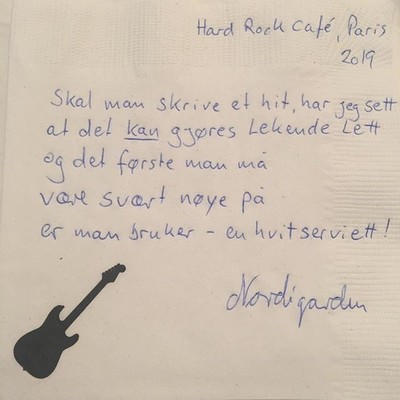 Hard Rock Café, Paris
2019
Skal man skrive et hit, har jeg sett
at det kan gjøres Lekende Lett
og det første man må
være svært nøye på
er man bruker - en hvit serviett!
Nordigarden